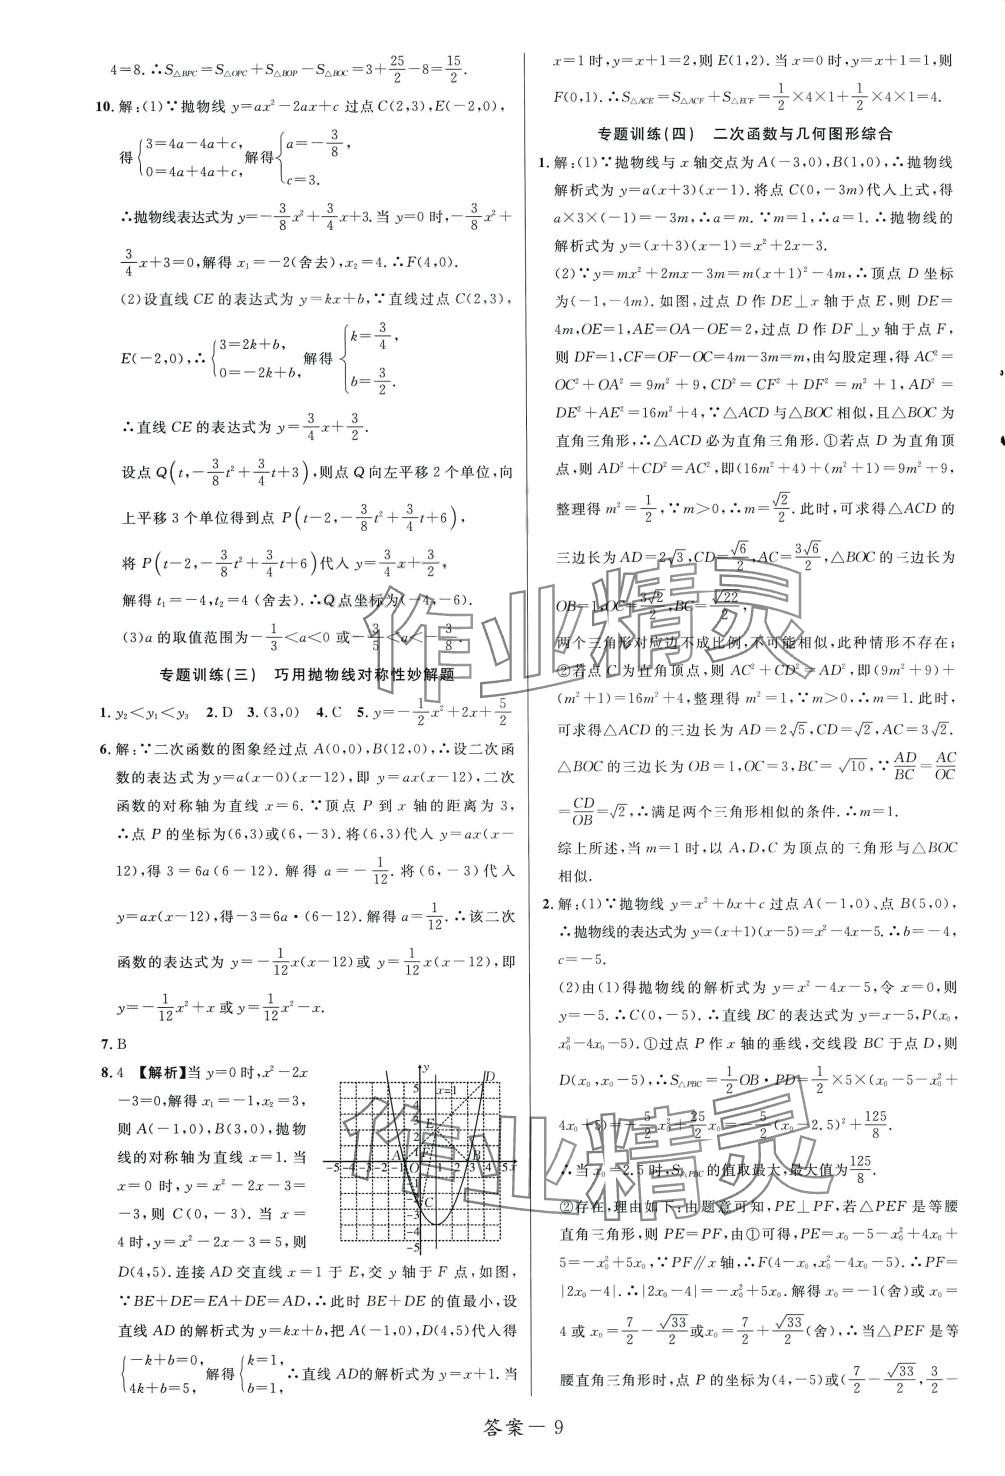 4=8.∴S△BPC=S△OPC+S△BOP-S△BOC=3+25/2-8=15/2.
10.解:(1)∵抛物线 y=ax²-2ax+c 过点C(2,3),E(-2,0),
得{3=4a-4a+c, 0=4a+4a+c, 解得{a=-3/8, c=3.
∴抛物线表达式为 y=-3/8x²+3/4x+3.当 y=0时,-3/8x²+
3/4x+3=0,解得 x₁=-2(舍去),x₂=4.∴F(4,0).
(2)设直线 CE 的表达式为 y=kx+b,∵直线过点C(2,3),
E(-2,0),∴{3=2k+b, 0=-2k+b, 解得{k=3/4, b=3/2.
∴直线 CE 的表达式为 y=3/4x+3/2.
设点 Q(t,-3/8t²+3/4t+3),则点 Q 向左平移 2 个单位,向
上平移 3 个单位得到点 P(t-2,-3/8t²+3/4t+6),
将 P(t-2,-3/8t²+3/4t+6)代入 y=3/4x+3/2,
解得 t₁=-4,t₂=4(舍去).∴Q点坐标为(-4,-6).
(3)a 的取值范围为-1/3<a<0 或-3/5<a<-3/8.
专题训练(三) 巧用抛物线对称性妙解题
1.y₂<y₁<y₃ 2.D 3.(3,0) 4.C 5.y=-1/2x²+2x+5/2
6.解:∵二次函数的图象经过点 A(0,0),B(12,0),∴设二次函
数的表达式为 y=a(x-0)(x-12),即 y=ax(x-12),二次
函数的对称轴为直线 x=6.∵顶点 P 到 x 轴的距离为 3,
∴点 P 的坐标为(6,3)或(6,-3).将(6,3)代入 y=ax(x-
12),得 3=6a(6-12).解得 a=-1/12.将(6,-3)代入
y=ax(x-12),得-3=6a·(6-12).解得 a=1/12.∴该二次
函数的表达式为 y=-1/12x(x-12)或 y=1/12x(x-12),即
y=-1/12x²+x 或 y=1/12x²-x.
7.B
8.4 【解析】当 y=0时,x²-2x
-3=0,解得 x₁=-1,x₂=3,
则 A(-1,0),B(3,0),抛物
线的对称轴为直线 x=1.当
x=0 时,y=x²-2x-3=
-3,则 C(0,-3).当 x=
4时,y=x²-2x-3=5,则
D(4,5).连接 AD 交直线 x=1 于 E,交 y 轴于 F 点,如图,
∵BE+DE=EA+DE=AD,∴此时 BE+DE 的值最小,设
直线 AD 的解析式为 y=kx+b,把 A(-1,0),D(4,5)代入得
{-k+b=0, 4k+b=5, 解得{k=1, b=1, ∴直线 AD的解析式为 y=x+1.当
y
x=1
D
E
F
A
O
B
C
x
-5 -4 -3 -2 1 2 3 4 5
x=1时,y=x+1=2,则 E(1,2).当 x=0 时,y=x+1=1,则
F(0,1).∴S△ACE=S△ACF+S△ECF=1/2×4×1+1/2×4×1=4.
专题训练(四) 二次函数与几何图形综合
1.解:(1)∵抛物线与 x 轴交点为 A(-3,0),B(1,0),∴抛物线
解析式为 y=a(x+3)(x-1).将点 C(0,-3m)代入上式,得
a×3×(-1)=-3m,∴a=m.∵m=1,∴a=1.∴抛物线的
解析式为 y=(x+3)(x-1)=x²+2x-3.
(2)∵y=mx²+2mx-3m=m(x+1)²-4m,∴顶点 D 坐标
为(-1,-4m).如图,过点 D 作 DE⊥x 轴于点 E,则 DE=
4m,OE=1,AE=OA-OE=2,过点 D 作 DF⊥y 轴于点 F,
则 DF=1,CF=OF-OC=4m-3m=m,由勾股定理,得 AC²=
OC²+OA²=9m²+9,CD²=CF²+DF²=m²+1,AD²=
DE²+AE²=16m²+4,∵△ACD 与△BOC 相似,且△BOC 为
直角三角形,∴△ACD 必为直角三角形.①若点 D 为直角顶
点,则 AD²+CD²=AC²,即(16m²+4)+(m²+1)=9m²+9,
整理得 m²=1/2,∵m>0,∴m=√2/2.此时,可求得△ACD 的
三边长为 AD=2√3,CD=√6/2,AC=3√6/2,△BOC 的三边长为
OB=1,OC=3√2/2,BC=√22/2,
两个三角形对应边不成比例,不可能相似,此种情形不存在;
②若点 C 为直角顶点,则 AC²+CD²=AD²,即(9m²+9)+
(m²+1)=16m²+4,整理得 m²=1,∵m>0,∴m=1.此时,
可求得△ACD的三边长为 AD=2√5,CD=√2,AC=3√2.
△BOC 的三边长为 OB=1,OC=3,BC=√10,∵AD/BC=AC/OC
=CD/OB=√2,∴满足两个三角形相似的条件.∴m=1.
综上所述,当 m=1时,以 A,D,C 为顶点的三角形与△BOC
相似.
2.解:(1)∵抛物线 y=x²+bx+c 过点 A(-1,0)、点 B(5,0),
∴抛物线的表达式为 y=(x+1)(x-5)=x²-4x-5.∴b=-4,
c=-5.
(2)由(1)得抛物线的解析式为 y=x²-4x-5,令 x=0,则
y=-5.∴C(0,-5).∴直线 BC 的表达式为 y=x-5,P(x₀,
x₀²-4x₀-5).①过点 P 作 x 轴的垂线,交线段 BC 于点 D,则
D(x₀,x₀-5),∴S△PBC=1/2OB·PD=1/2×5×(x₀-5-x₀²+
4x₀+5)=-5/2x₀²+25/2x₀=-5/2(x₀-2.5)²+125/8.
∴当 x₀=2.5 时,S△PBC的值取最大,最大值为125/8.
②存在,理由如下:由题意可知,PE⊥PF,若△PEF 是等腰
直角三角形,则 PE=PF,由①可得,PE=x₀-5-x₀²+4x₀+
5=-x₀²+5x₀,∵PF∥x 轴,∴F(4-x₀,x₀²-4x₀-5).∴PF=
|2x₀-4|.∴|2x₀-4|=-x₀²+5x₀.解得 x₀=-1(舍)或 x₀=
4 或 x₀=7/2-√33/2或x₀=7/2+√33/2(舍),∴当△PEF 是等
腰直角三角形时,点 P 的坐标为(4,-5)或(7/2-√33/2,3/2-
答案-9
作业精灵
作业精灵